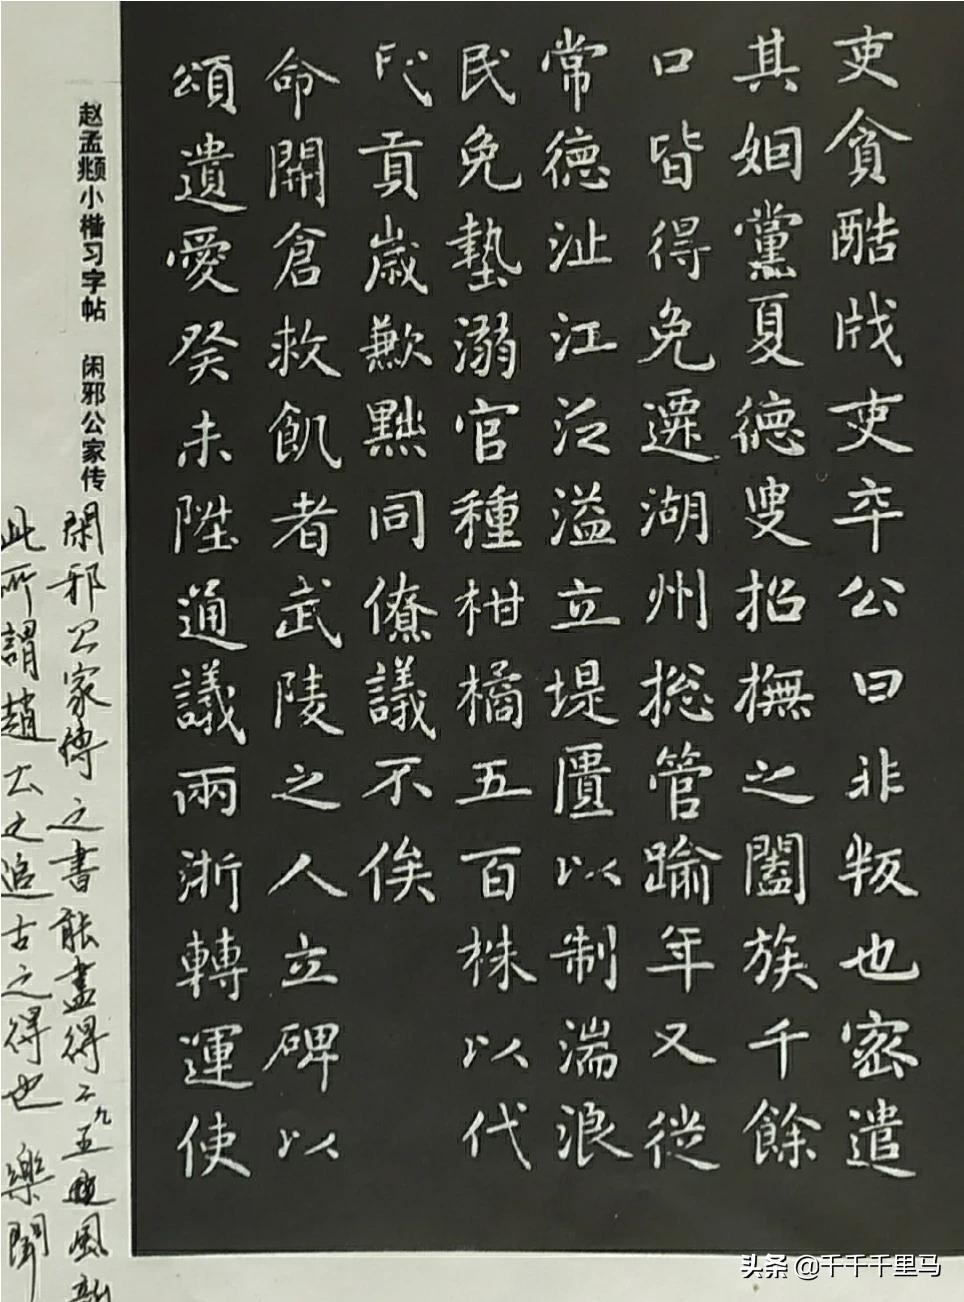 吏貪酷戕吏卒公曰非叛也密遣
其姻黨夏德叟招撫之闔族千餘
口皆得免遷湖州総管踰年又従
常德沚江泛溢立堤匽以制湍浪
民免墊溺官種柑橘五百株以代
民貢歳歉黜同僚議不俟
命開倉救飢者武陵之人立碑以
頌遺愛癸未陞通議兩浙轉運使
赵孟頫小楷习字帖 闲邪公家传
閑邪公家傳之書能盡得二九五
此所謂趙公之追古之得也 樂聞
头条 @千千千里马